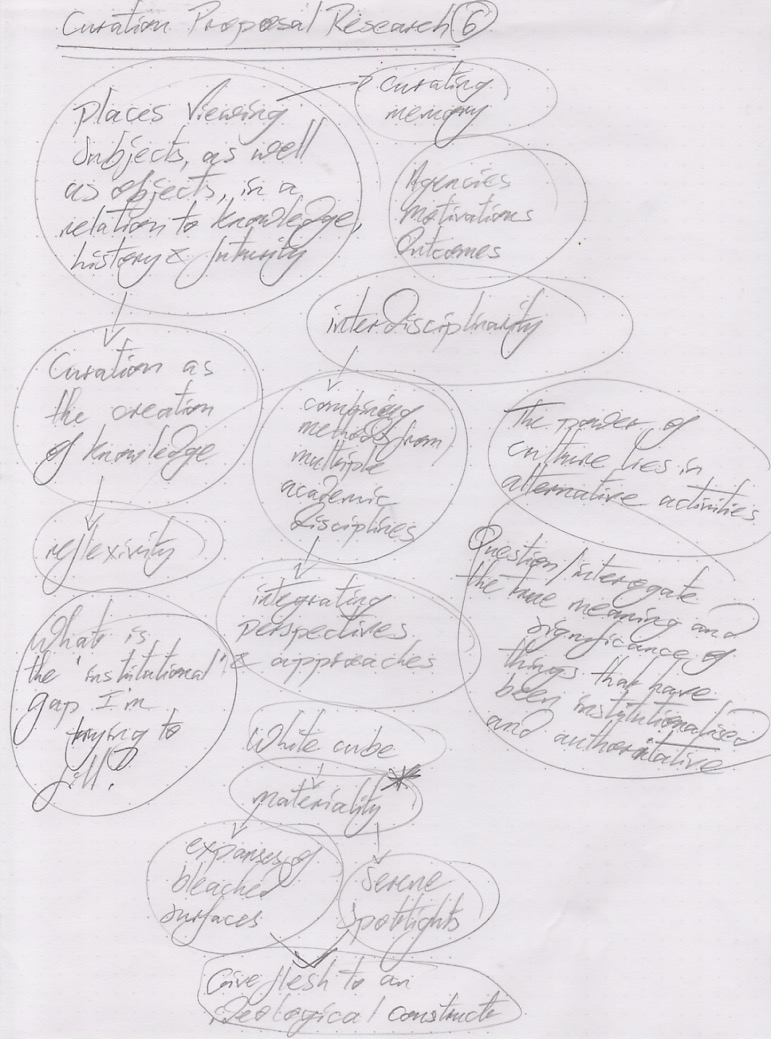 Curation Proposal Research 6
places viewing
subjects, as well
as objects, in a
relation to knowledge,
history & futurity
curating
memory
Agencies
Motivations
Outcomes
interdisciplinarity
Curation as
the creation
of knowledge
combining
methods from
multiple
academic
disciplines
The power of
culture lies in
alternative activities
reflexivity
integrating
perspectives
& approaches
Question/interrogate
the true meaning and
significance of
things that have
been institutionalised
and authoritative
What is
the 'institutional'
gap I'm
trying to
fill?
White cube
materiality *
expanses of
bleached
surfaces
serene
spotlights
Give flesh to an
ideological construct